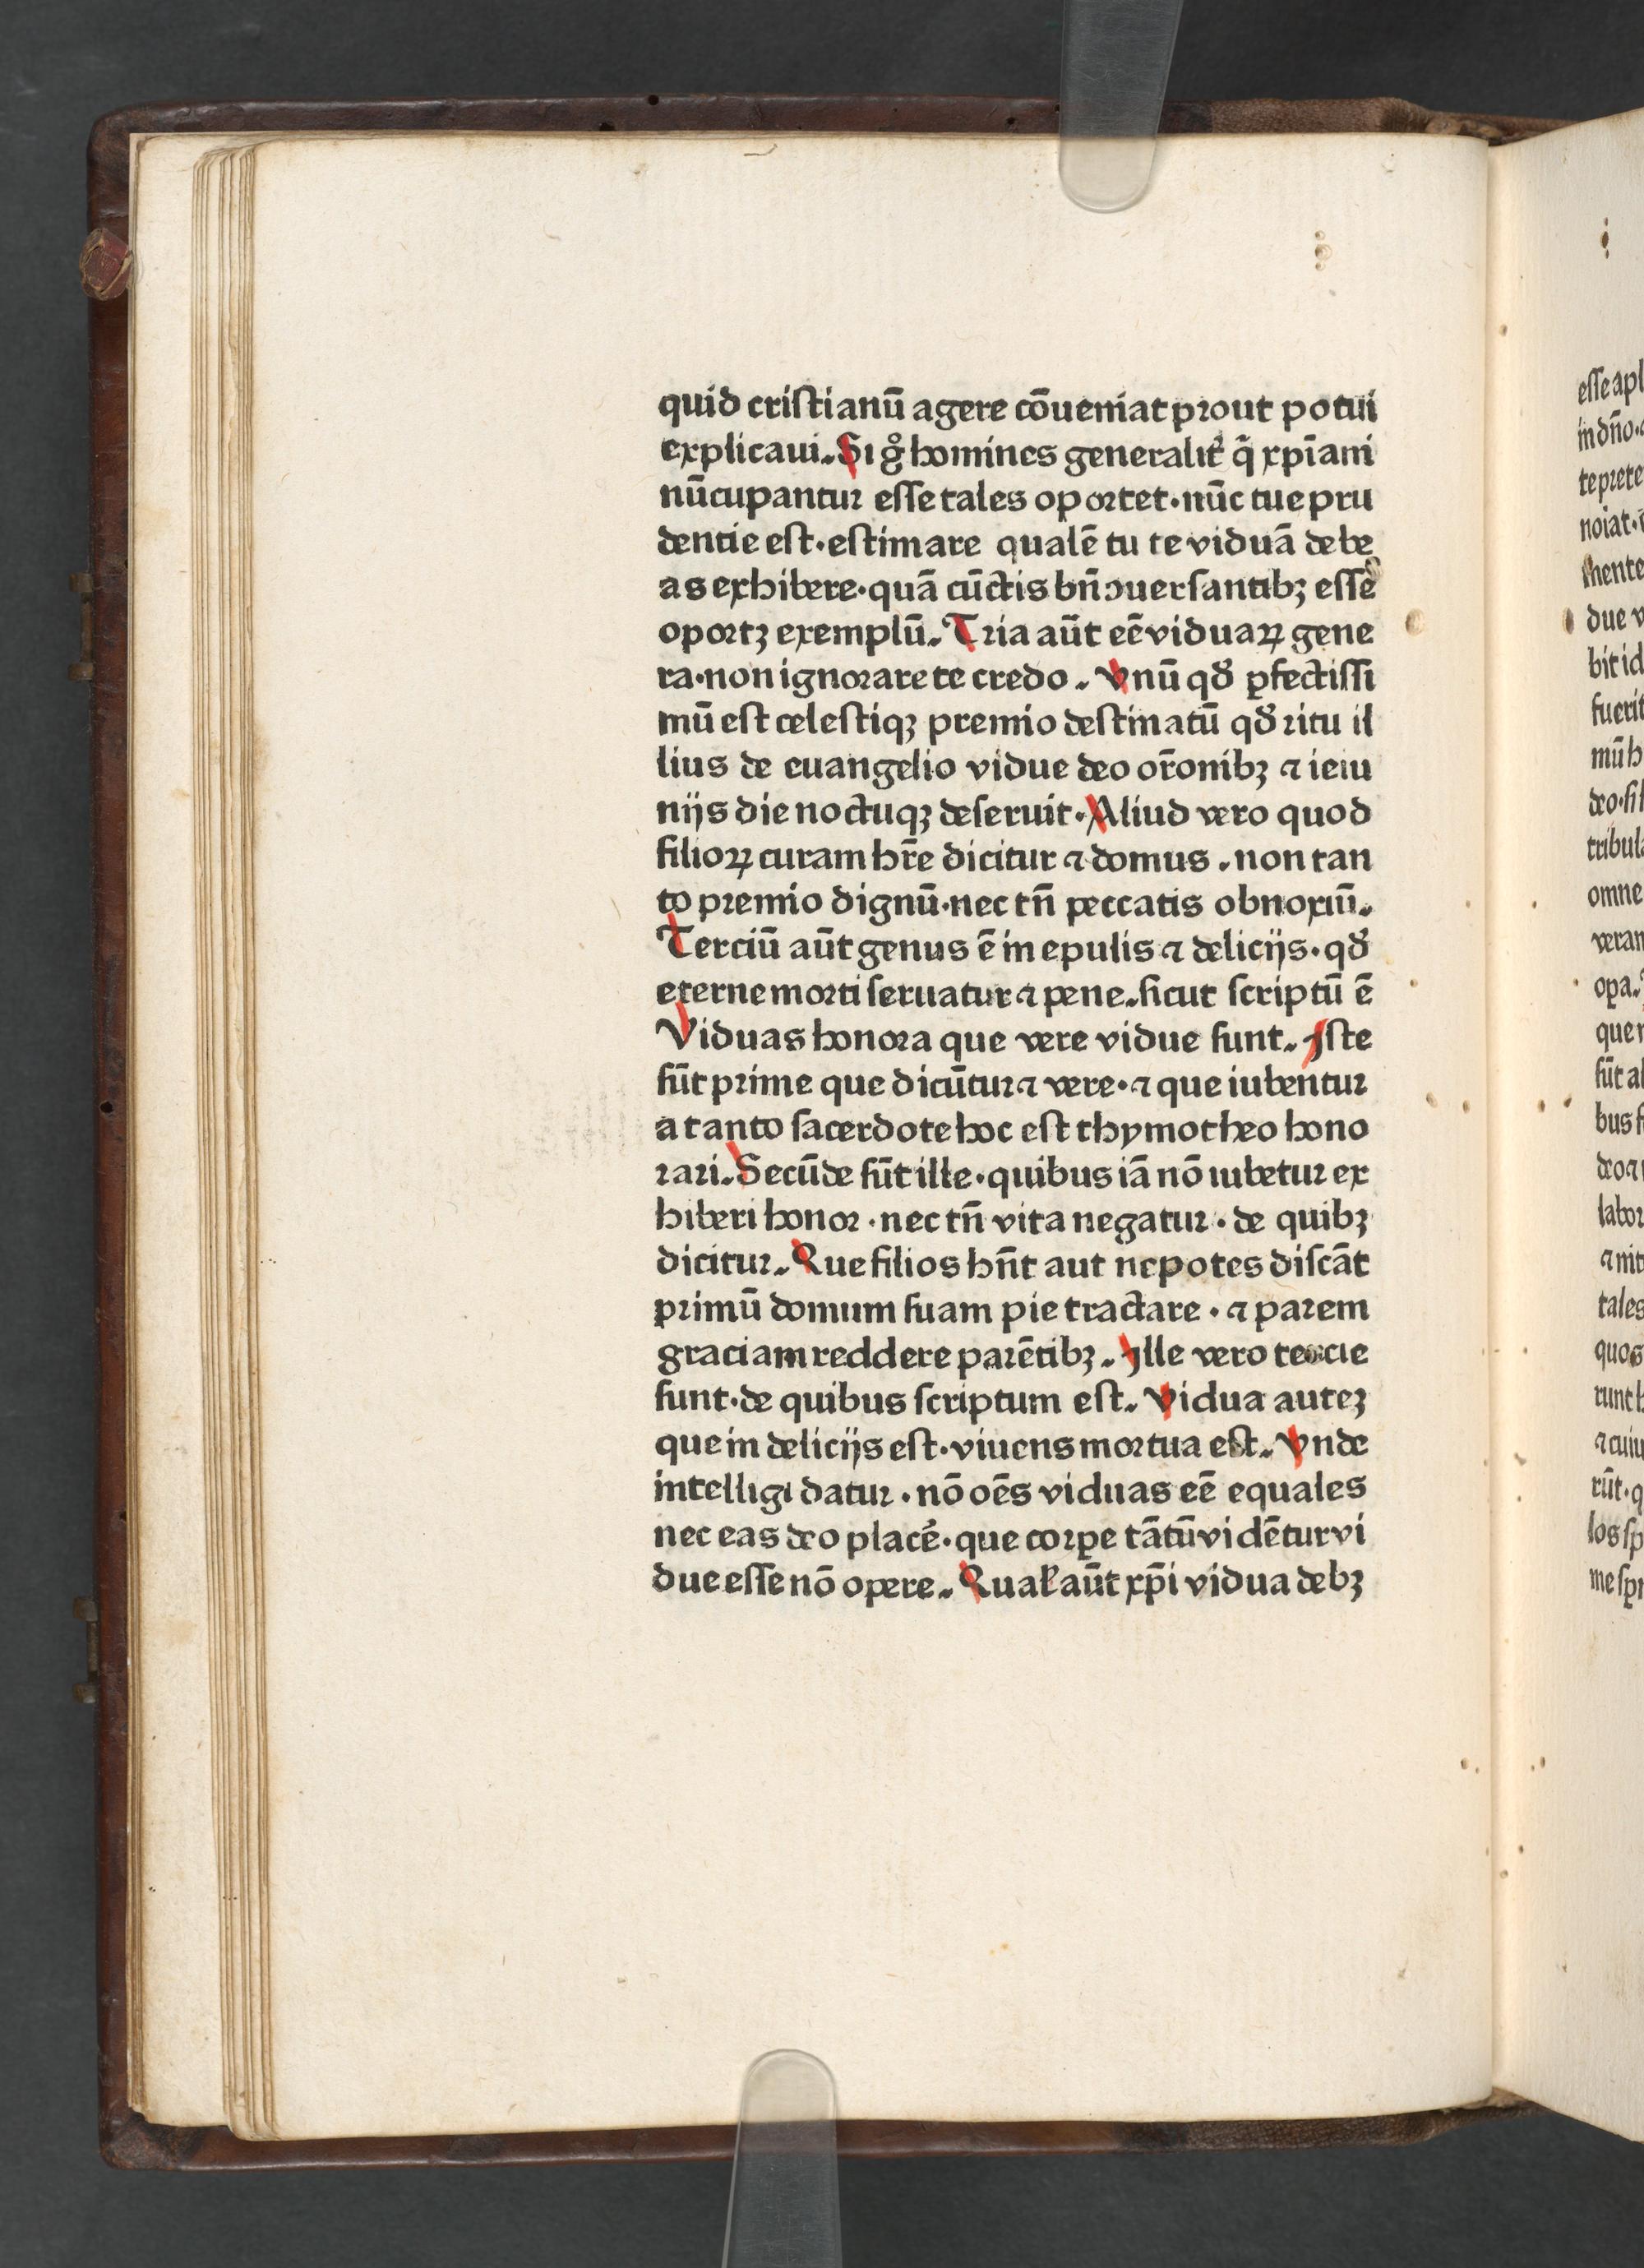 quid criſtianū agere cōueniat prout potui
explicaui. Si gͦ homines generalit᷑ q̄ xp̄iani
nūcupantur eſſe tales oportet · nūc tue pru
dentie eſt · eſtimare qualē tu te viduā debe
as exhibere · quā cūctis bn̄ ↄuerſantibꝫ eſſe
oportꝫ exemplū. Tria aūt eē viduaꝝ gene
ra · non ignorare te credo. Vnū qđ ꝑfectiſſi
mū eſt celeſtiqꝫ premio deſtinatū qđ ritu il
lius de euangelio vidue deo or̄onibꝫ ⁊ ieiu
nijs die noctuqꝫ deſeruit · Aliud vero quod
filioꝝ curam hr̄e dicitur ⁊ domus. non tan
to premio dignū · nec tn̄ peccatis obnoxiū.
Terciū aūt genus ē in epulis ⁊ delicijs · qđ
eterne morti ſeruatur ⁊ pene. ſicut ſcriptū ē
Viduas honora que vere vidue ſunt. Iſte
ſūt prime que dicūtur ⁊ vere · ⁊ que iubentur
a tanto ſacerdote hoc eſt thymotheo hono
rari. Secūde ſūt ille · quibus iā nō iubetur ex
hiberi honor · nec tn̄ vita negatur · de quibꝫ
dicitur. Que filios hn̄t aut nepotes diſcāt
primū domum ſuam pie tractare · ⁊ parem
graciam reddere parētibꝫ. Ille vero tercie
ſunt · de quibus ſcriptum eſt. Vidua auteꝫ
que in delicijs eſt · viuens mortua eſt. Vnde
intelligi datur · nō oēs viduas eē equales
nec eas deo placē · que corꝑe tātū vidētur vi
due eſſe nō opere. Qual' aūt xp̄i vidua debꝫ